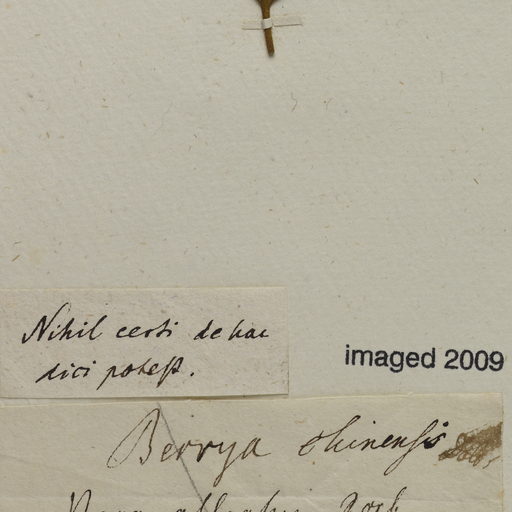 Nihil certi de hac
dici potest.
imaged 2009
Berrya chinensis